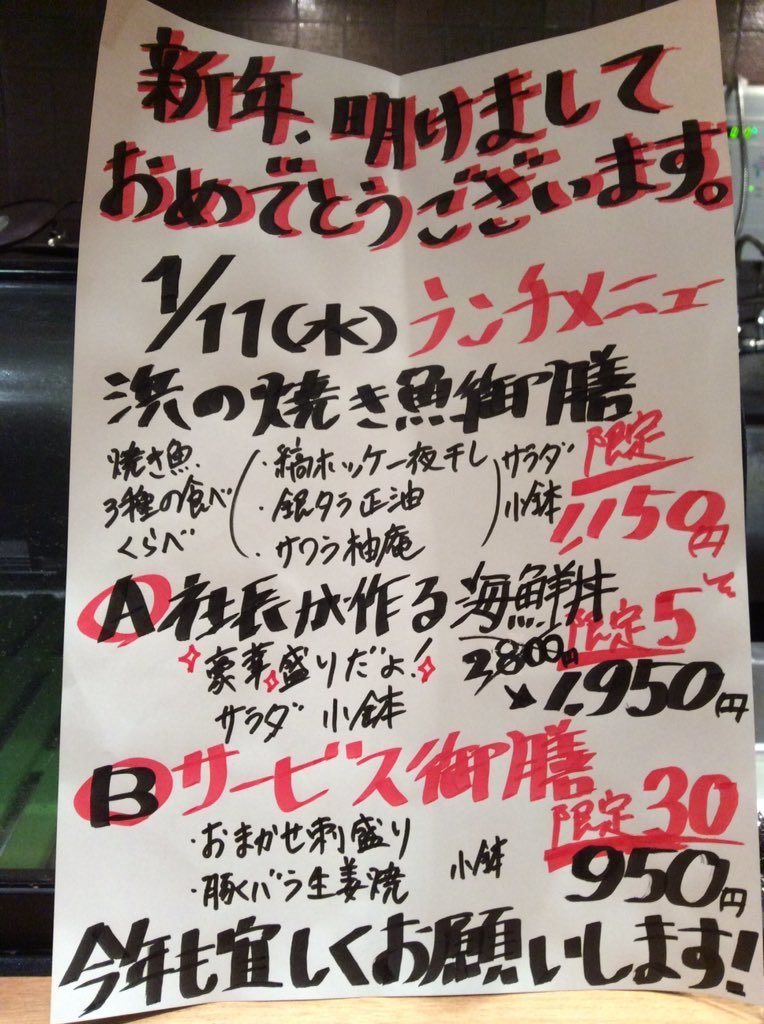 新年、明けまして
おめでとうございます。
1/11(水) ランチメニュー
浜の焼き魚御膳
限定
焼き魚
3種の食べ
くらべ
・縞ホッケ一夜干し
・銀タラ正油
・サワラ柚庵
サラダ
小鉢
1,150円
A 社長が作る海鮮丼
限定5
豪華盛りだよ!
サラダ 小鉢
1,950円
B サービス御膳
限定30
・おまかせ刺盛り
・豚バラ生姜焼
小鉢
950円
今年も宜しくお願いします!